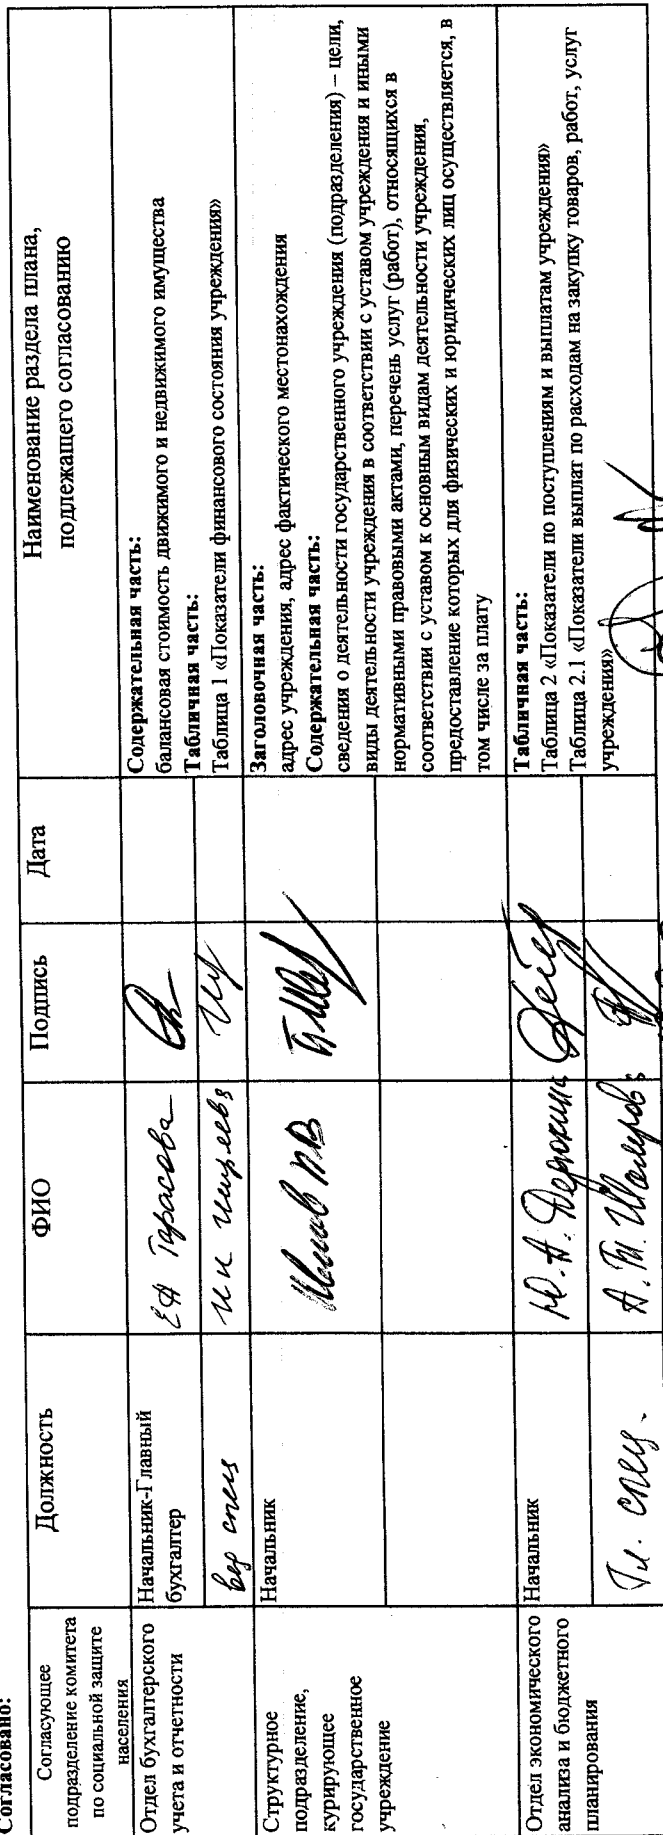 Согласовано:
Согласующее
подразделение комитета
по социальной защите
населения
Должность
ФИО
Подпись
Дата
Наименование раздела плана,
подлежащего согласованию
Отдел бухгалтерского
учета и отчетности
Начальник-Главный
бухгалтер
ЕА Тарасова
Содержательная часть:
балансовая стоимость движимого и недвижимого имущества
Табличная часть:
Таблица 1 «Показатели финансового состояния учреждения»
вед спец
Структурное
подразделение,
курирующее
государственное
учреждение
Начальник
Заголовочная часть:
адрес учреждения, адрес фактического местонахождения
Содержательная часть:
сведения о деятельности государственного учреждения (подразделения) – цели,
виды деятельности учреждения в соответствии с уставом учреждения и иными
нормативными правовыми актами, перечень услуг (работ), относящихся в
соответствии с уставом к основным видам деятельности учреждения,
предоставление которых для физических и юридических лиц осуществляется, в
том числе за плату
Отдел экономического
анализа и бюджетного
планирования
Начальник
Ю.А.
Табличная часть:
Таблица 2 «Показатели по поступлениям и выплатам учреждения»
Таблица 2.1 «Показатели выплат по расходам на закупку товаров, работ, услуг
учреждения»
Гл. спец.